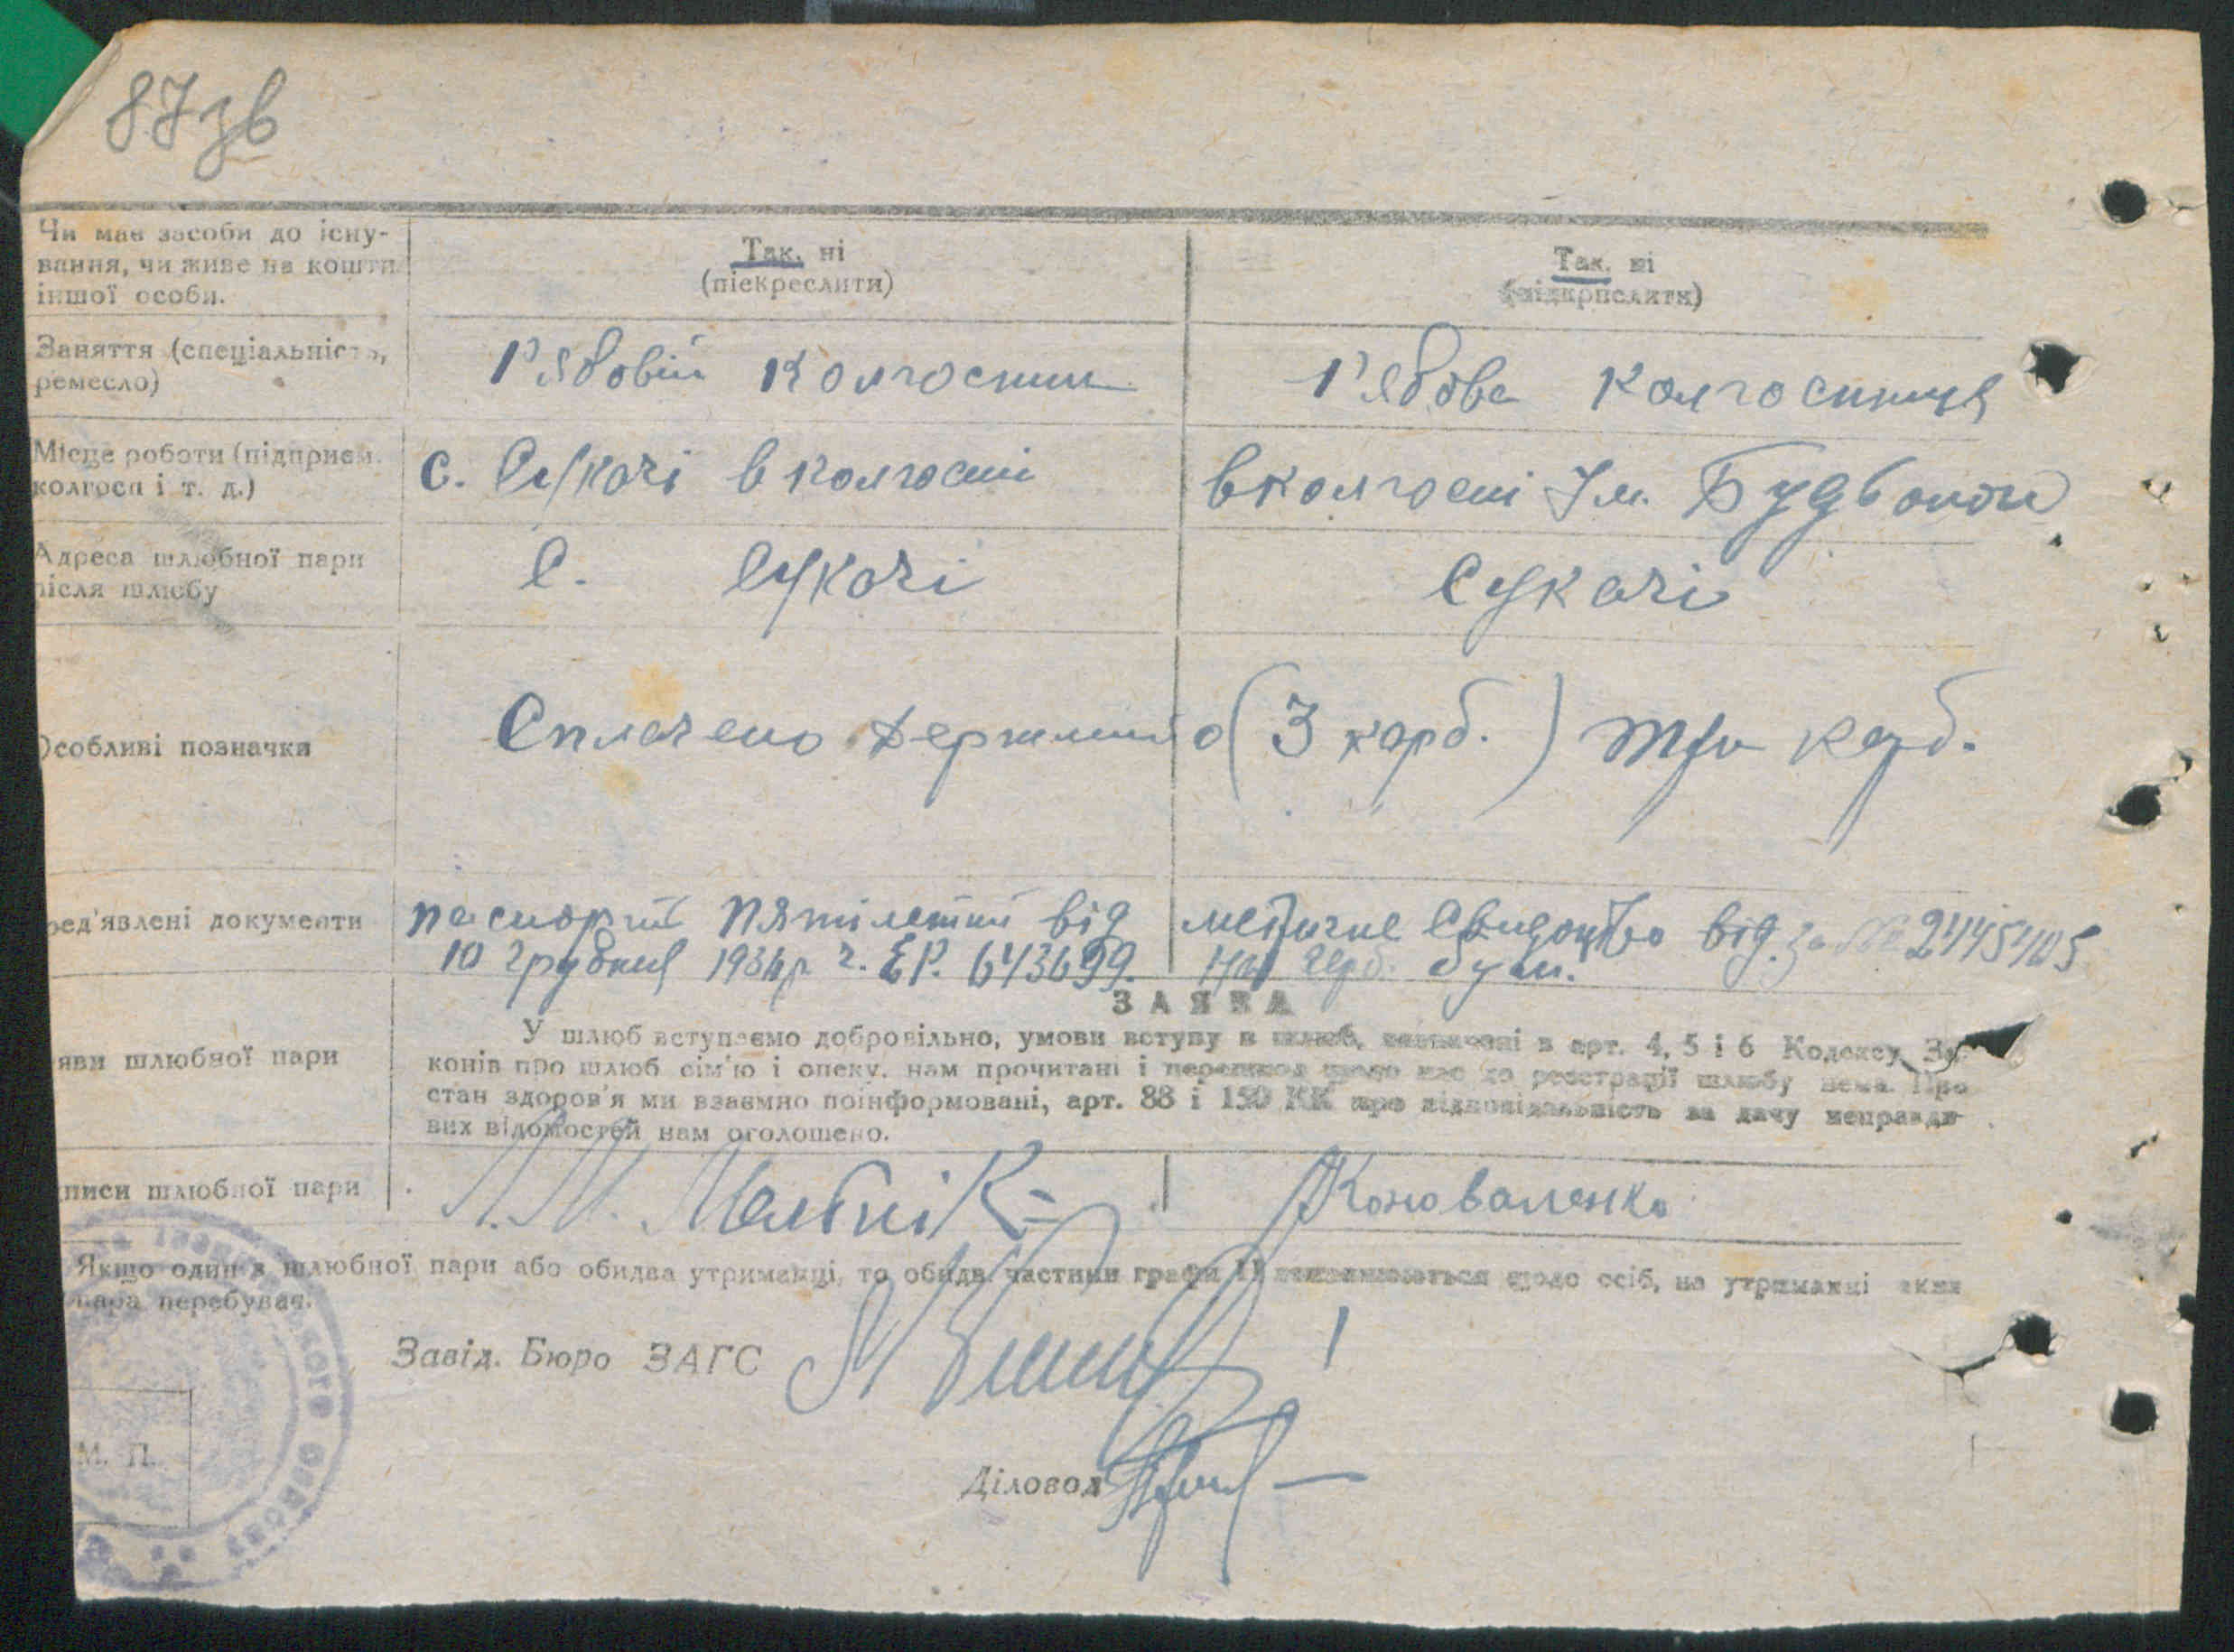 87зв
Чи має засоби до існу-
вання, чи живе на кошти
іншої особи.
Так, ні
(піскреслити)
Так, ні
(підкрпслити)
Заняття (спеціальність,
ремесло)
Рядовій колгоспник
Рядова колгоспниця
Місце роботи (підприєм.
колгосп і т. д.)
с. Сукачі в колгоспі
в колгоспі Ім.
Адреса шлюбної пари
після шлюбу
С. Сукачі
Сукачі
Особливі позначки
Сплачено держмито (3 карб.) три карб.
ред'явлені документи
паспорт пятілетній від
10 грудня 1934р. ЕР. 643699.
медичне свидоцтво від. за № 2445405
на герб. бум.
ЗАЯВА
яви шлюбної пари
У шлюб вступаємо добровільно, умови вступу в шлюб, зазначені в арт. 4, 5 і 6 Кодексу За-
конів про шлюб сім'ю і опеку, нам прочитані і перешкод щодо нас до реєстрації шлюбу нема. Про
стан здоров'я ми взаємно поінформовані, арт. 88 і 150 КК про відповідальність за дачу неправди-
вих відомостей нам оголошено.
писи шлюбної пари
Мельнік
Коноваленко
Якщо один з шлюбної пари або обидва утриманці, то обидві частини графи 11 виповнюються щодо осіб, на утриманні яких
пара перебуває.
Завід. Бюро ЗАГС
М. П.
Діловод